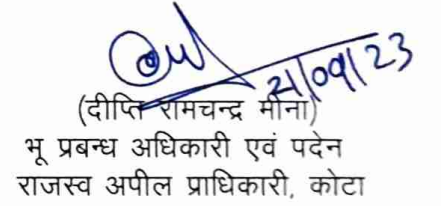 21/09/23
(दीप्ति रामचन्द्र मीना)
भू प्रबन्ध अधिकारी एवं पदेन
राजस्व अपील प्राधिकारी, कोटा